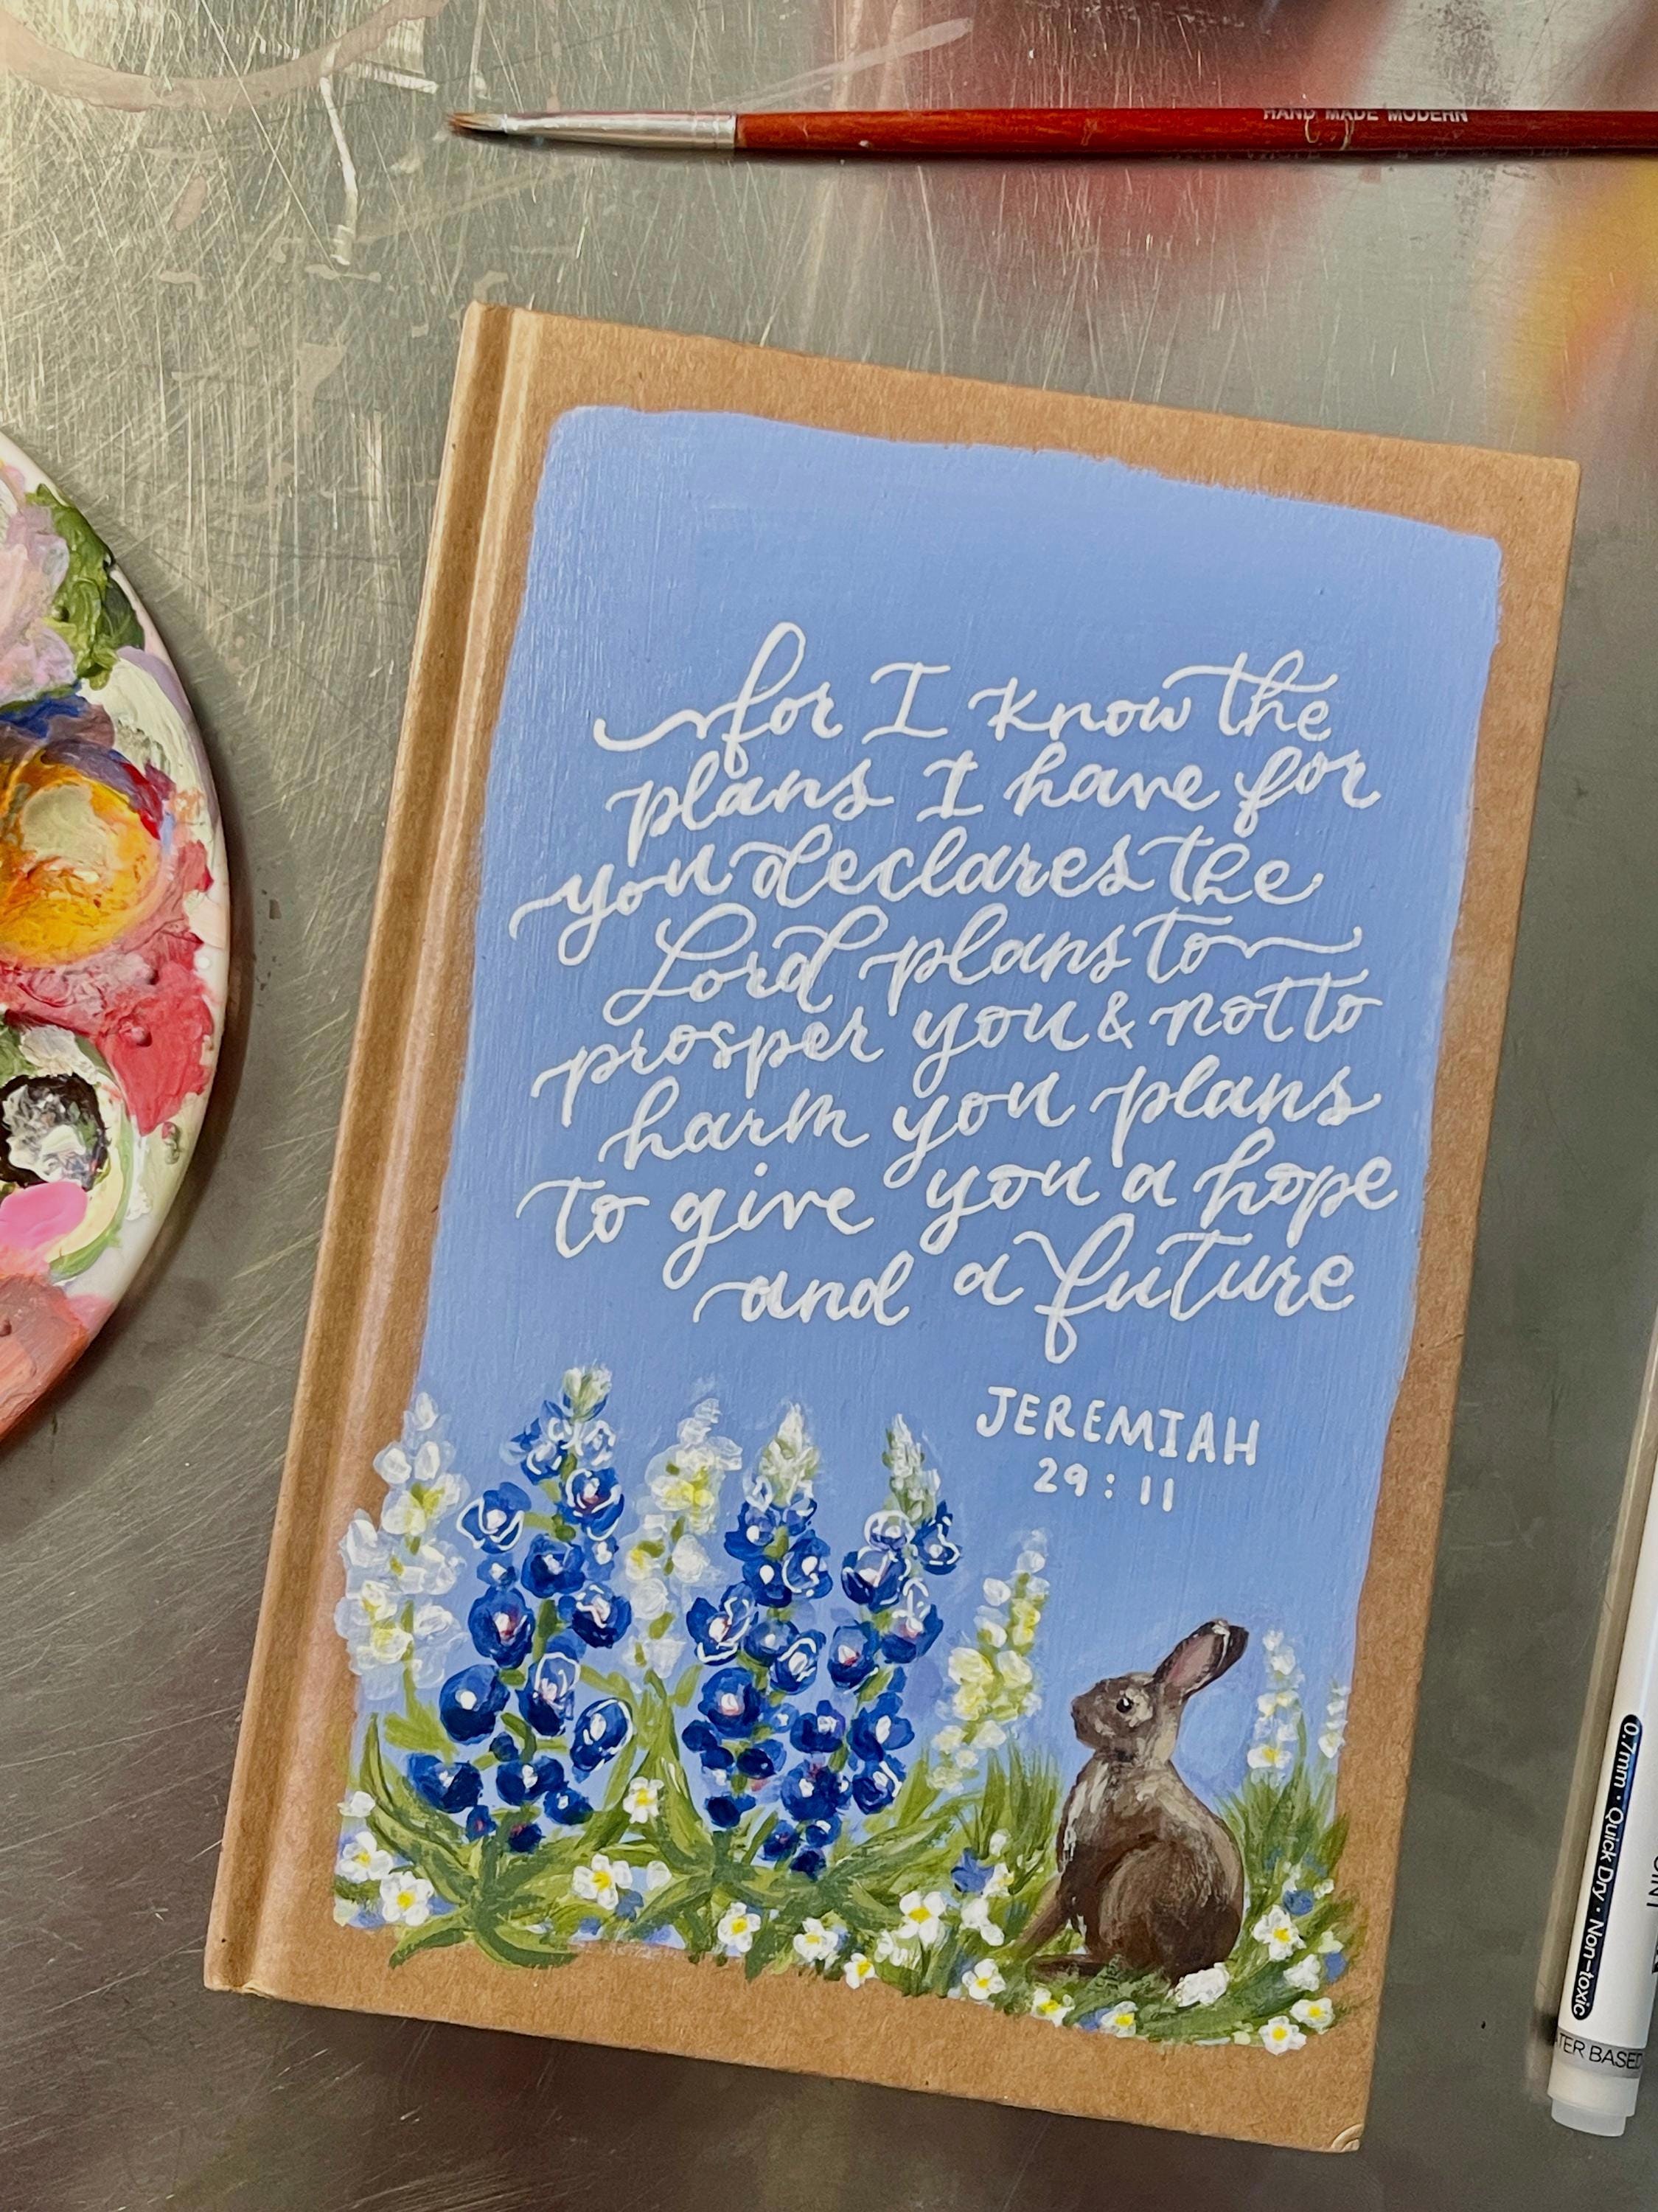 HAND MADE MODERN
for I know the
plans I have for
you declares the
Lord plans to
prosper you & not to
harm you plans
to give you a hope
and a future
JEREMIAH
29:11
0.7mm · Quick Dry · Non-toxic
TER BASED